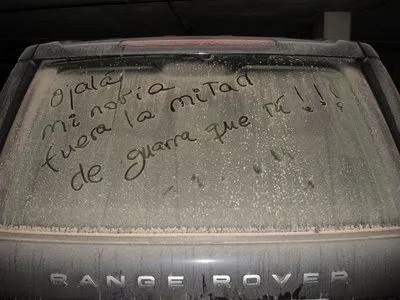 Ojalá
mi novia
fuera la mitad
de guarra que tú!!!
RANGE ROVER